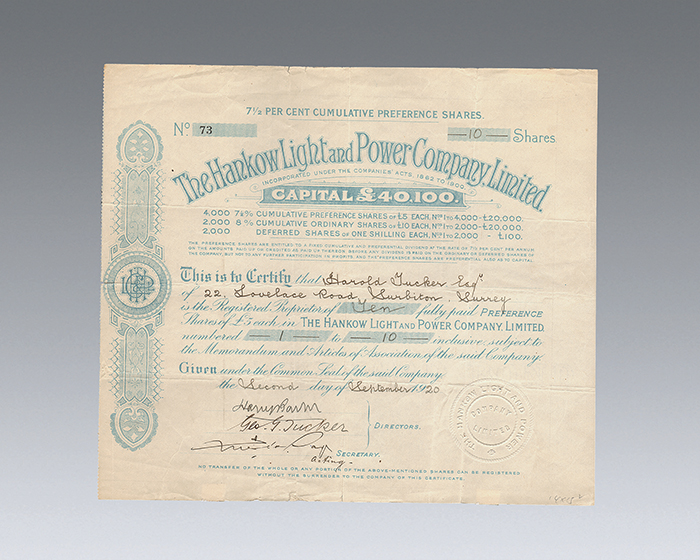 7½ PER CENT CUMULATIVE PREFERENCE SHARES.
No 73 —10— Shares
The Hankow Light and Power Company, Limited.
INCORPORATED UNDER THE COMPANIES' ACTS, 1862 TO 1900.
CAPITAL £40,100.
4,000 7½% CUMULATIVE PREFERENCE SHARES OF £5 EACH, Nos 1 TO 4,000 - £20,000.
2,000 8% CUMULATIVE ORDINARY SHARES OF £10 EACH, Nos 1 TO 2,000 - £20,000.
2,000 DEFERRED SHARES OF ONE SHILLING EACH, Nos 1 TO 2,000 - £100.
THE PREFERENCE SHARES ARE ENTITLED TO A FIXED CUMULATIVE AND PREFERENTIAL DIVIDEND AT THE RATE OF 7½ PER CENT PER ANNUM
ON THE AMOUNTS PAID UP OR CREDITED AS PAID UP THEREON, BEFORE ANY DIVIDEND IS PAID ON THE ORDINARY OR DEFERRED SHARES OF
THE COMPANY, BUT NOT TO ANY FURTHER PARTICIPATION IN PROFITS, AND THE PREFERENCE SHARES ARE PREFERENTIAL ALSO AS TO CAPITAL.
This is to Certify that Harold Tucker Esqr
of 22, Lovelace Road Surbiton, Surrey
is the Registered Proprietor of Ten fully paid PREFERENCE
Shares of £5 each in THE HANKOW LIGHT AND POWER COMPANY, LIMITED,
numbered — 1 — to — 10 — inclusive subject to
the Memorandum and Articles of Association of the said Company.
Given under the Common Seal of the said Company,
the Second day of September 1920
Geo. G. Tucker
DIRECTORS.
SECRETARY.
acting.
THE HANKOW LIGHT AND POWER
COMPANY
LIMITED
NO TRANSFER OF THE WHOLE OR ANY PORTION OF THE ABOVE-MENTIONED SHARES CAN BE REGISTERED
WITHOUT THE SURRENDER TO THE COMPANY OF THIS CERTIFICATE.